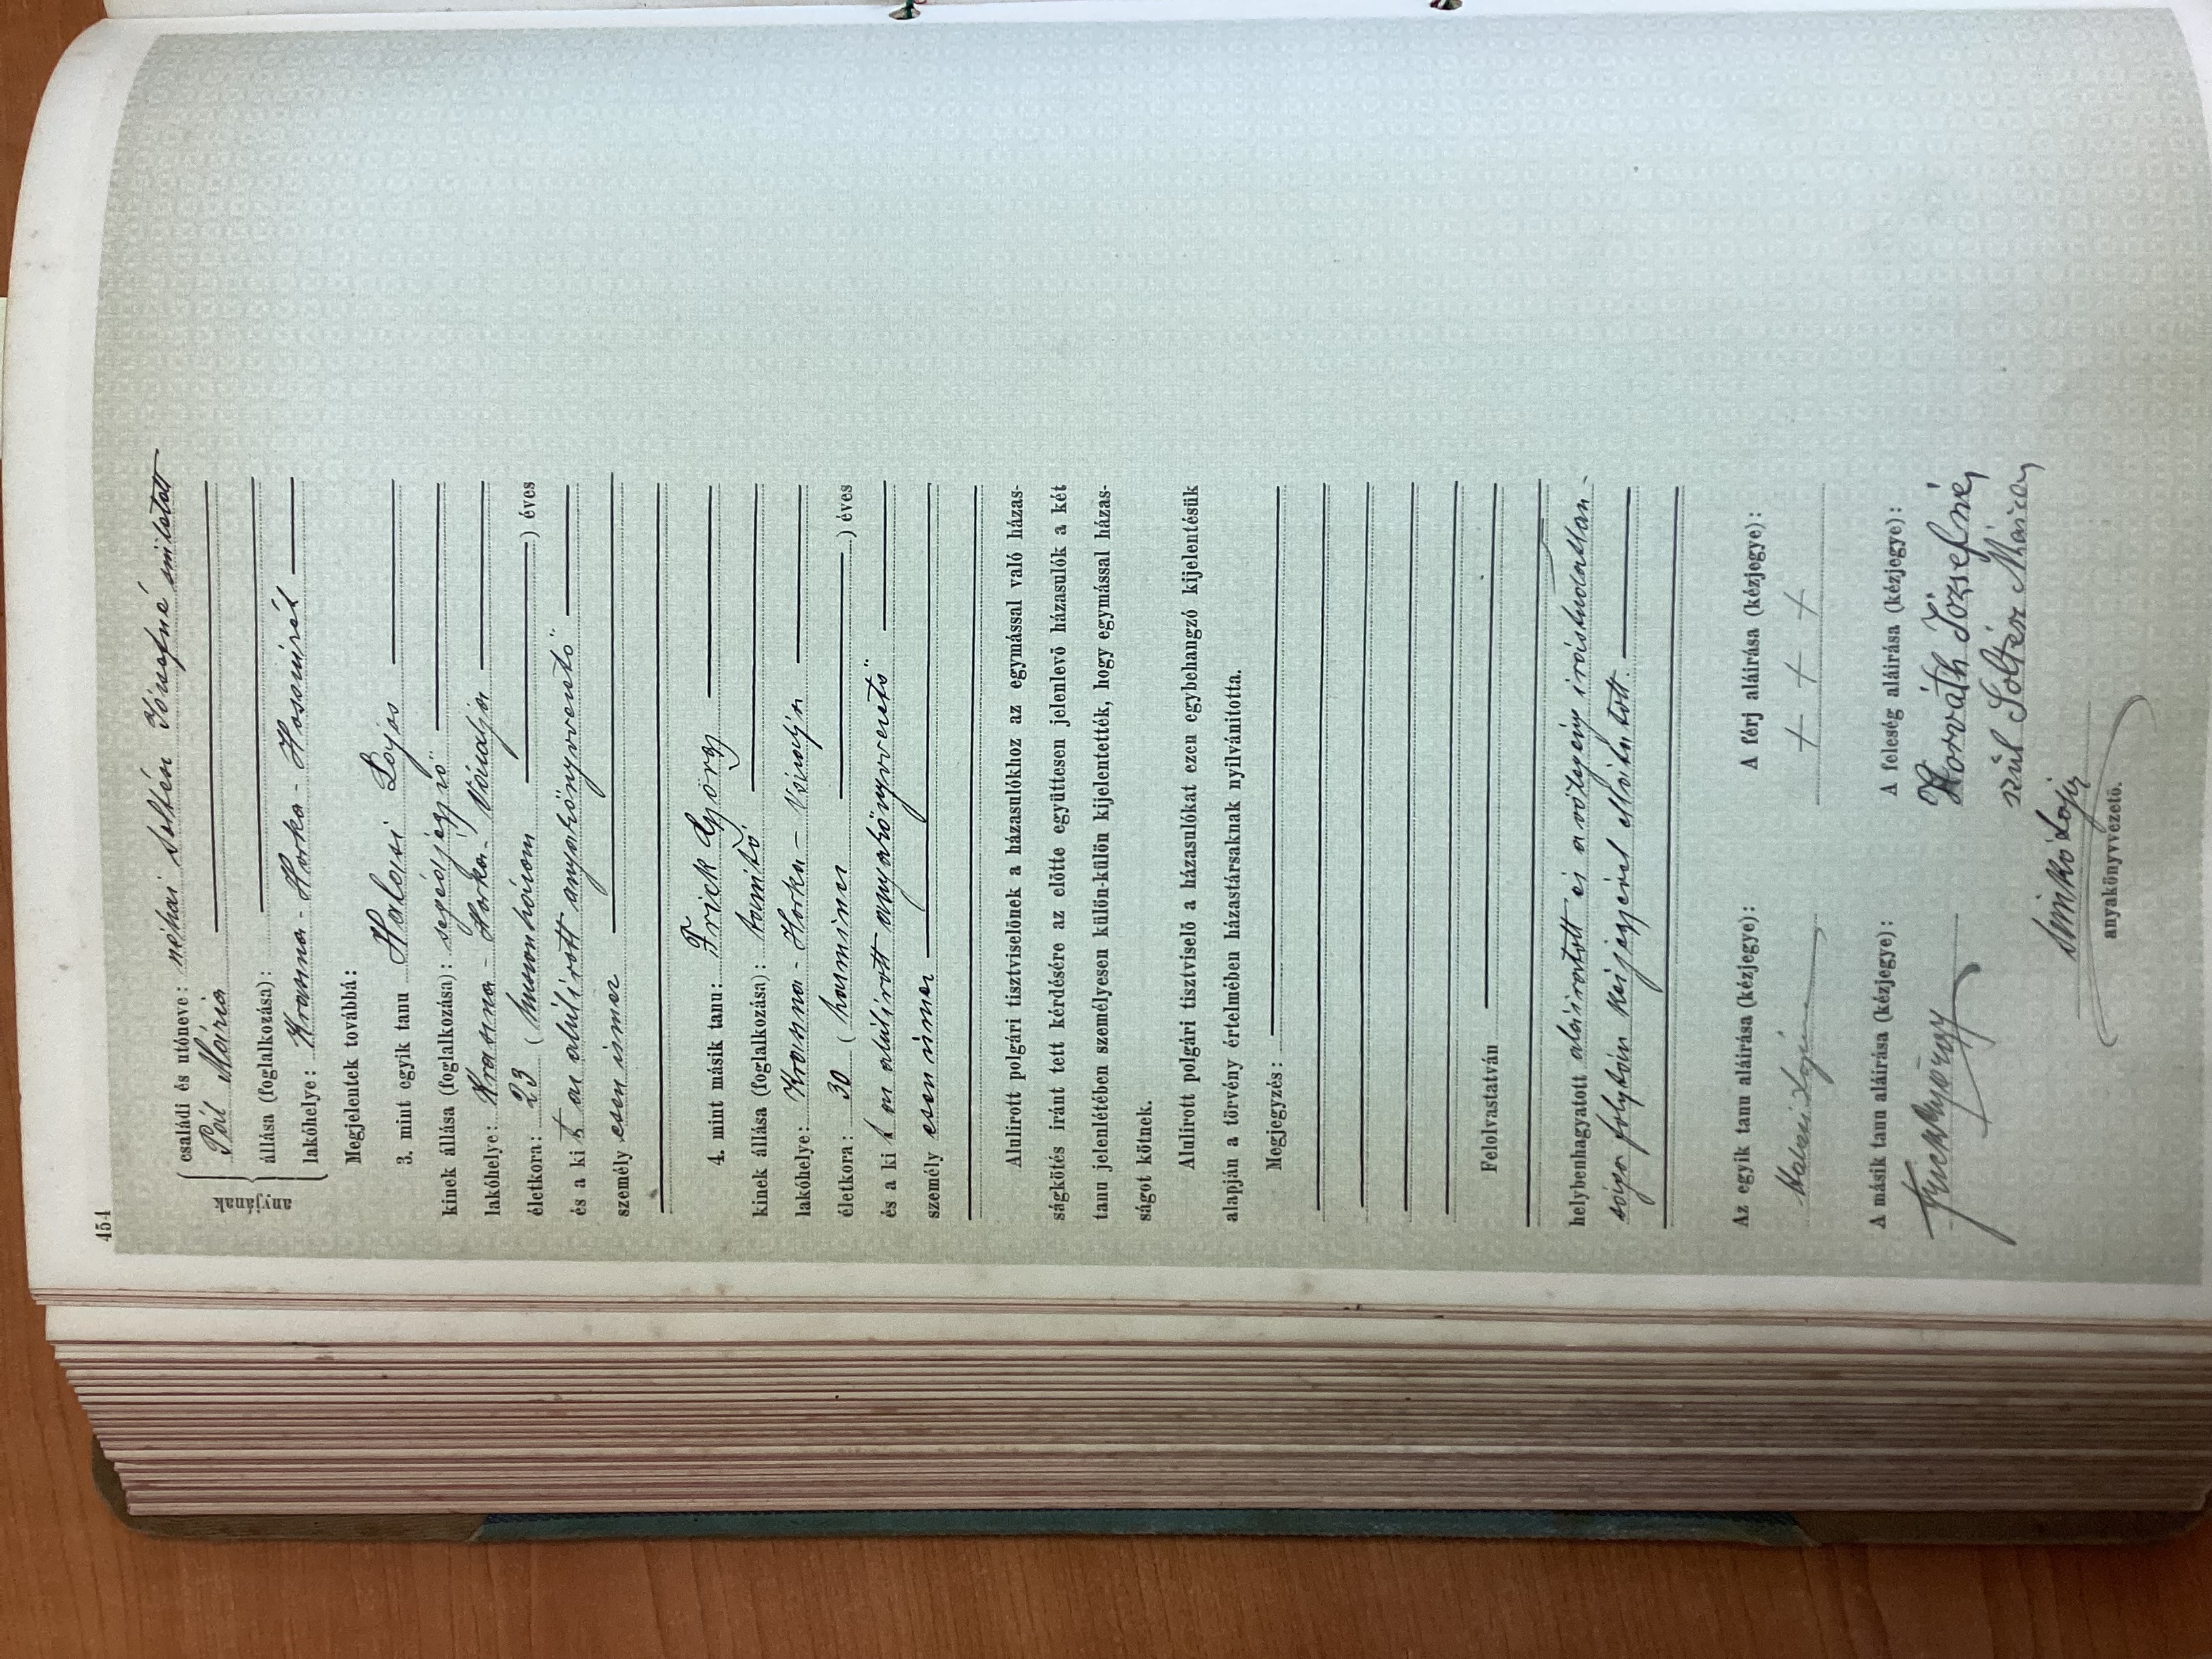 454
anyjának
családi és utóneve: néhai Soltész Józsefné született
Pál Mária
állása (foglalkozása):
lakóhelye: Krasna-Horka-Hosszúrét
Megjelentek továbbá:
3. mint egyik tanu Halasi Lajos
kinek állása (foglalkozása): segédjegyző
lakóhelye: Krasna-Horka-Váralja
életkora: 23 (huszonhárom) éves
és a ki t az alulírott anyakönyvvezető
személyesen ismer
4. mint másik tanu: Frick György
kinek állása (foglalkozása): tanító
lakóhelye: Krasna-Horka-Váralja
életkora: 30 (harmincz) éves
és a ki t az alulírott anyakönyvvezető
személyesen ismer
Alulirott polgári tisztviselőnek a házasulókhoz az egymással való házas-
ságkötés iránt tett kérdésére az előtte együttesen jelenlevő házasulók a két
tanu jelenlétében személyesen külön-külön kijelentették, hogy egymással házas-
ságot kötnek.
Alulirott polgári tisztviselő a házasulókat ezen egybehangzó kijelentésük
alapján a törvény értelmében házastársaknak nyilvánította.
Megjegyzés:
Felolvastatván
helybenhagyatott aláiratott és a vőlegény írástudatlan-
sága folytán kézjegyével elláttatott.
Az egyik tanu aláírása (kézjegye): A férj aláírása (kézjegye):
Halasi Lajos + + +
A másik tanu aláírása (kézjegye): A feleség aláírása (kézjegye):
Frick György Horváth Józsefné,
szül Soltész Mária
Simkó Lajos
anyakönyvvezető.